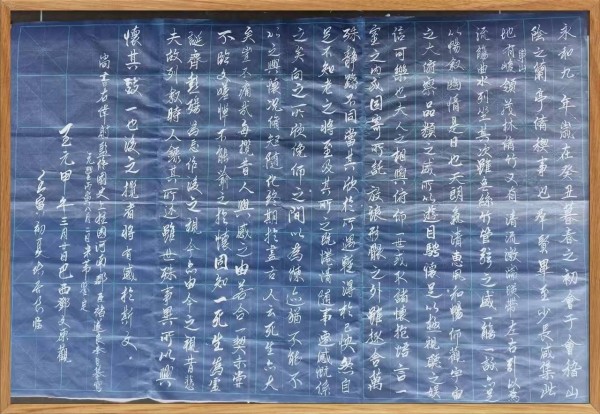 永和九年歲在癸丑暮春之初會于會稽山
陰之蘭亭脩稧事也羣賢畢至少長咸集此
地有崇山峻領茂林脩竹又有清流激湍暎帶左右引以為
流觴曲水列坐其次雖無絲竹管弦之盛一觴一詠亦足
以暢敘幽情是日也天朗氣清惠風和暢仰觀宇宙
之大俯察品類之盛所以遊目騁懷足以極視聽之娛
信可樂也夫人之相與俯仰一世或取諸懷抱悟言一
室之內或因寄所託放浪形骸之外雖趣舍萬
殊靜躁不同當其欣於所遇蹔得於己快然自
足不知老之將至及其所之既惓情隨事遷感慨係
之矣向之所欣俛仰之間以為陳迹猶不能不
以之興懷況脩短隨化終期於盡古人云死生亦大
矣豈不痛哉每攬昔人興感之由若合一契未嘗
不臨文嗟悼不能喻之於懷固知一死生為虛
誕齊彭殤為妄作後之視今亦由今之視昔悲
夫故列敘時人錄其所述雖世殊事異所以興
懷其致一也後之攬者將有感於斯文
年三月廿日巴西鄧文原觀